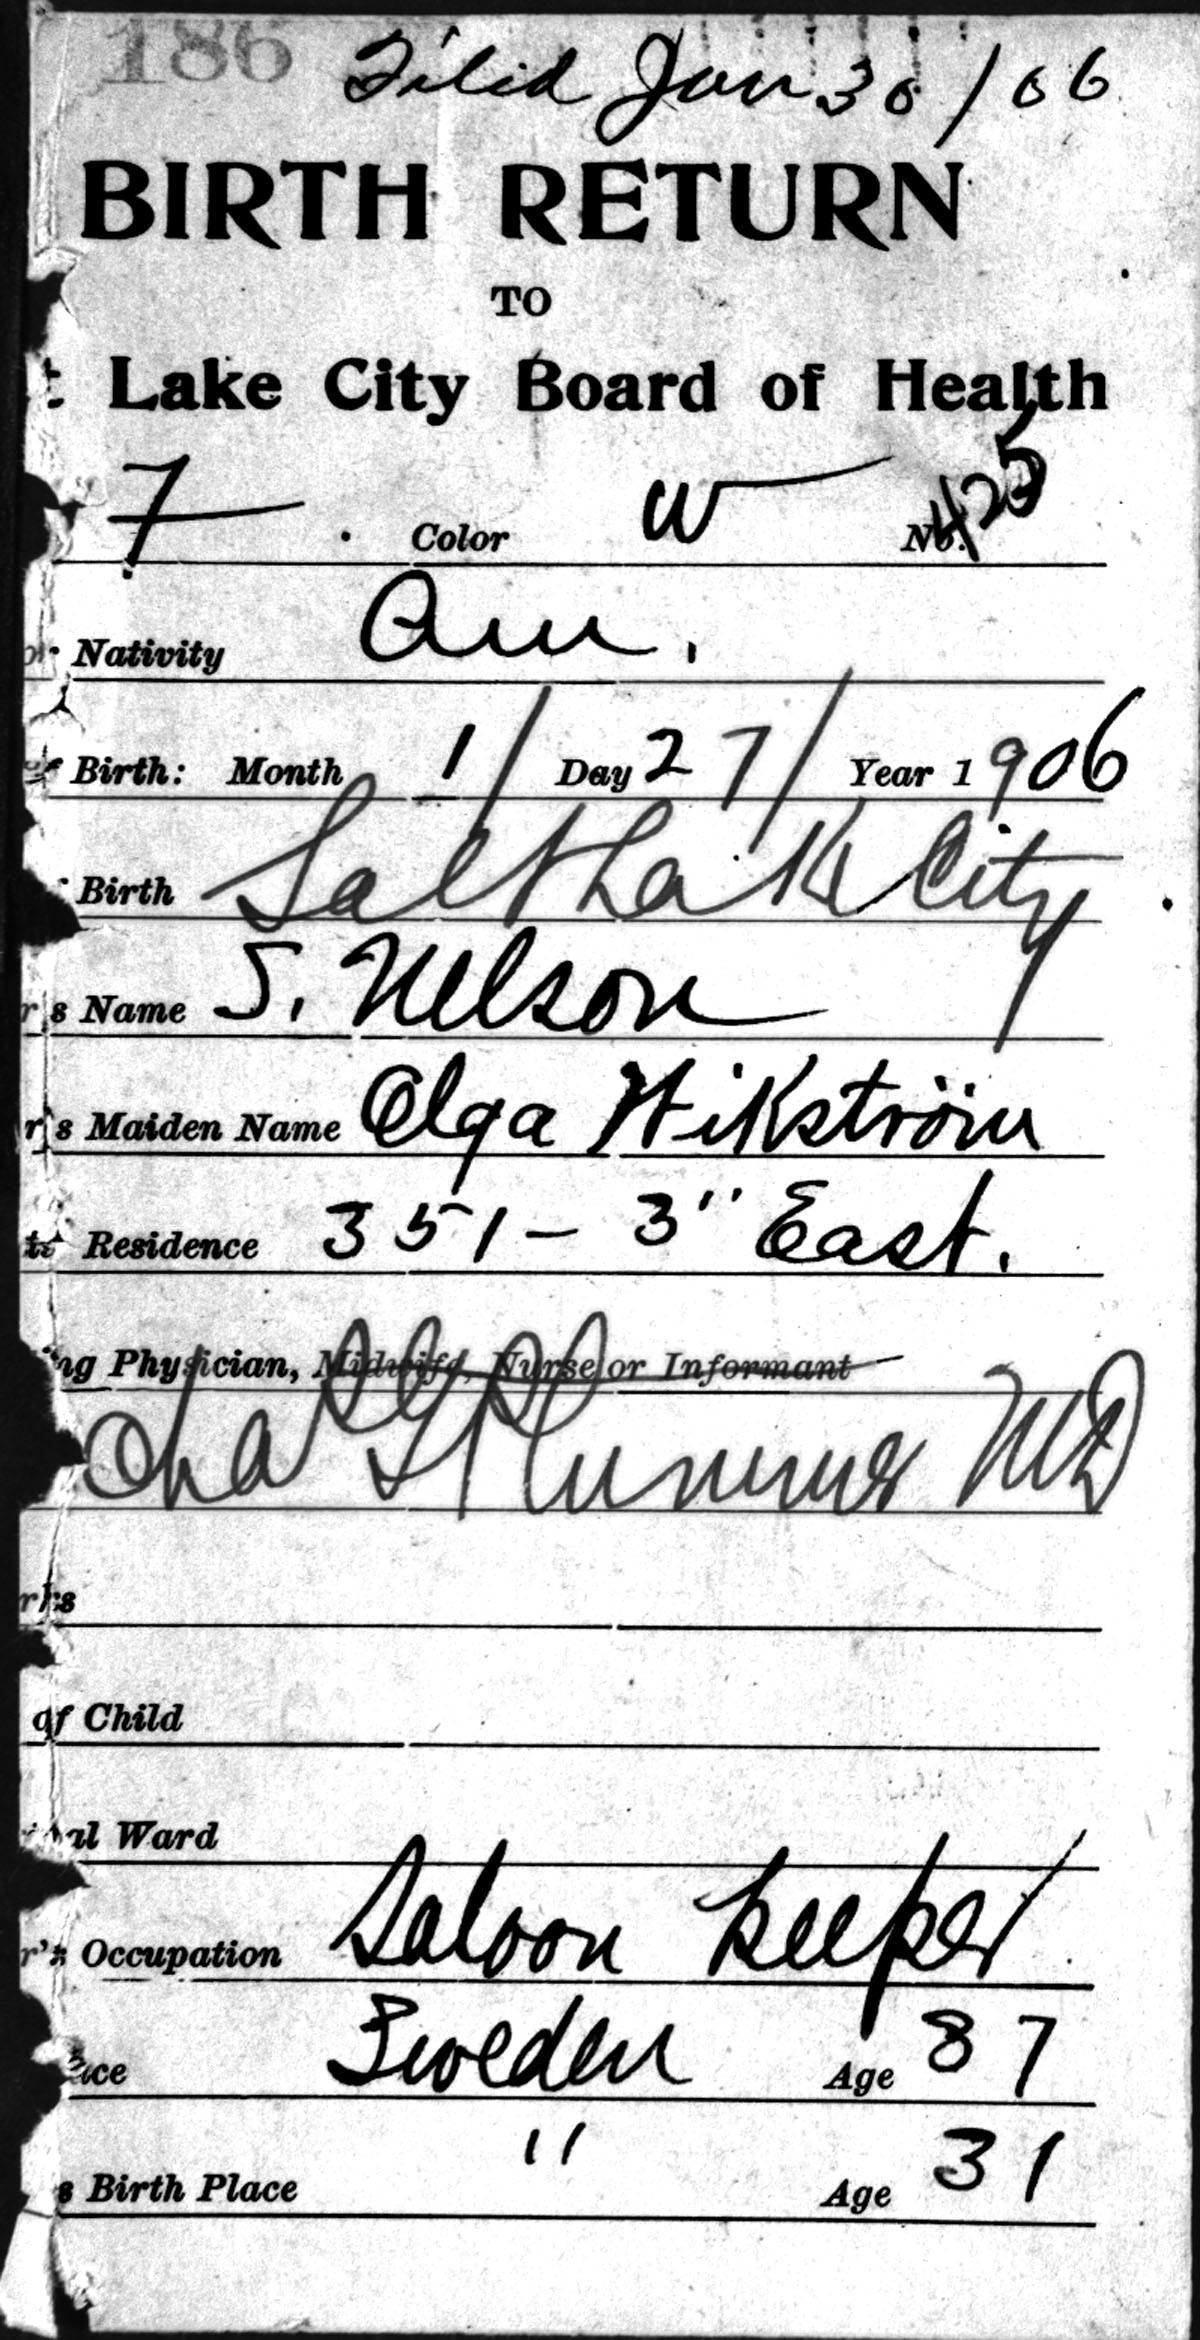 186 Filed Jan 30/06
BIRTH RETURN
TO
t Lake City Board of Health
F. Color W No. 425
or Nativity Am.
of Birth: Month 1/ Day 27/ Year 1906
Birth Salt Lak City
r's Name S. Nelson
r's Maiden Name Olga Wikström
ts' Residence 351 - 3" East.
ing Physician, Midwife, Nurse or Informant
Chas G Plummer MD
rks
of Child
ipal Ward
r's Occupation Saloon keeper
ace Sweden Age 37
s Birth Place " Age 31